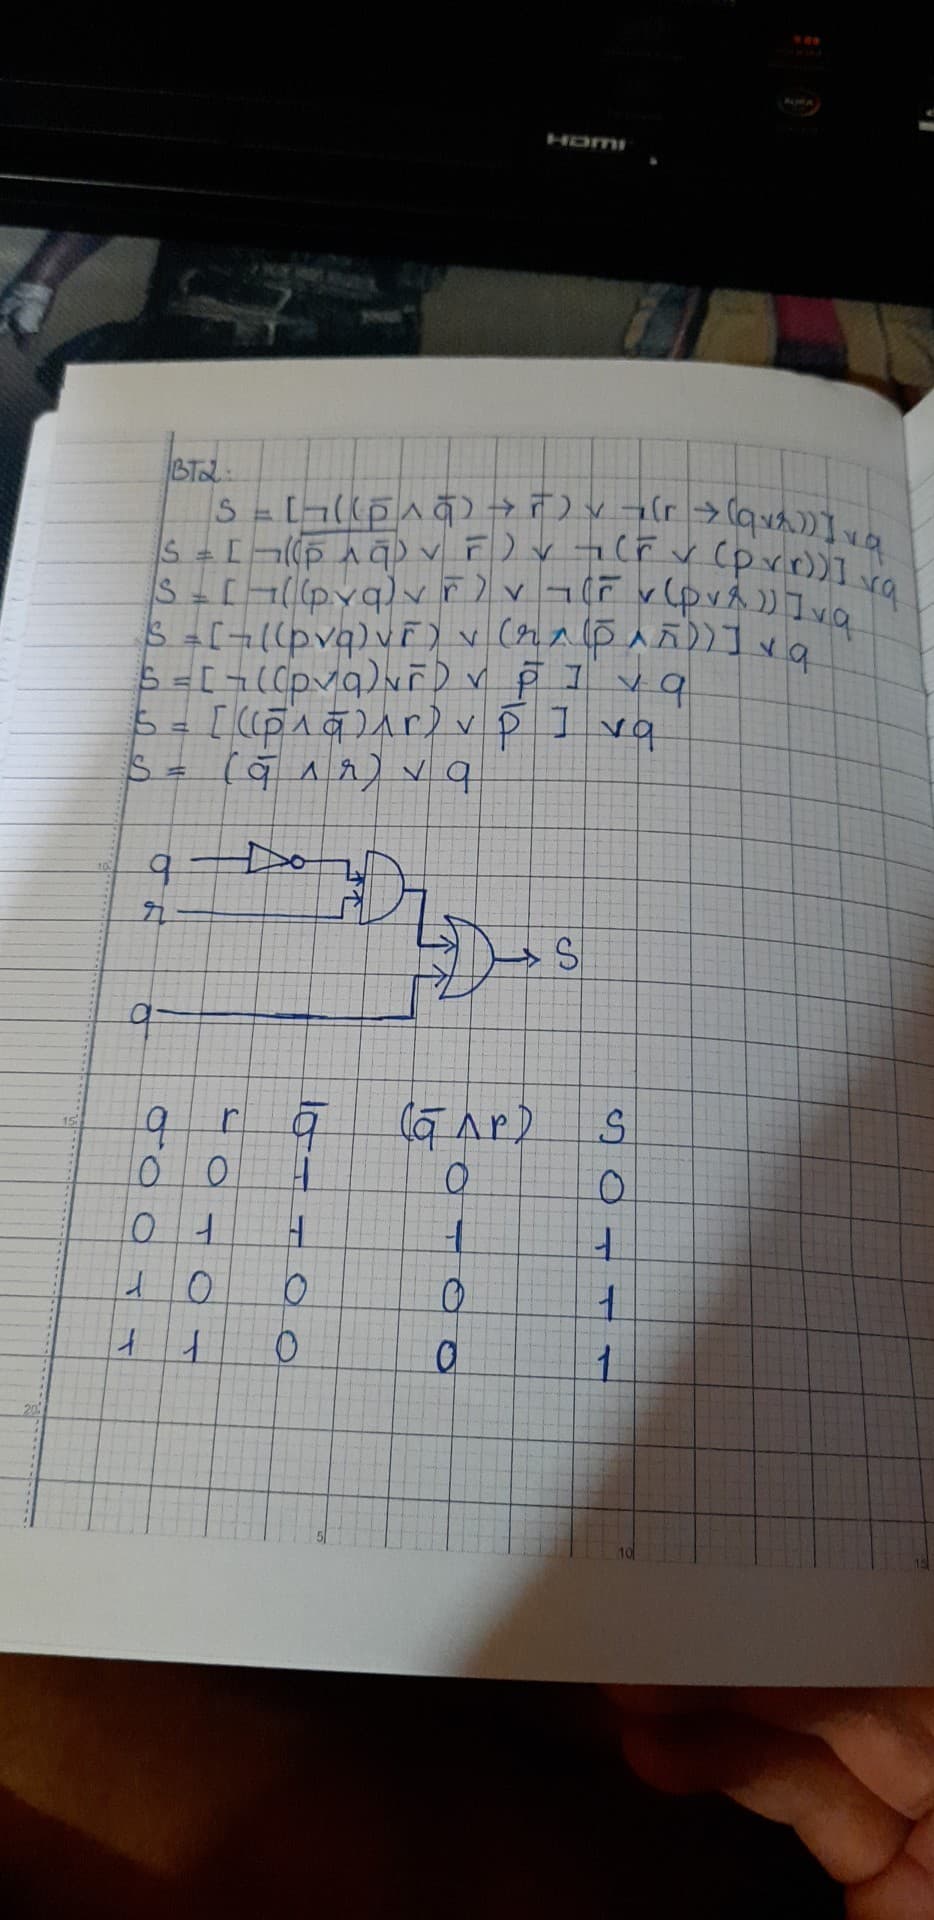 HDMI
BT2:
S = [¬((p̅ ∧ q̅) → r̅) ∨ ¬(r → (q∨r))] ∨q
S = [¬((p̅ ∧ q̅) ∨ r̅) ∨ ¬(r̅ ∨ (p∨r))] ∨q
S = [¬((p∨q)∨r̅) ∨ ¬(r̅ ∨(p∨r))]∨q
S =[¬((p∨q)∨r̅) ∨ (r∧(p̅ ∧ r̅))] ∨q
S =[¬((p∨q)∨r̅) ∨ p̅ ] ∨ q
S = [((p̅∧q̅)∧r) ∨ p̅ ] ∨q
S = (q̅ ∧ r) ∨ q
10
q
r
S
q
15
q r q̅ (q̅ ∧ r) S
0 0 1 0 0
0 1 1 1 1
1 0 0 0 1
1 1 0 0 1
20
5 10 15